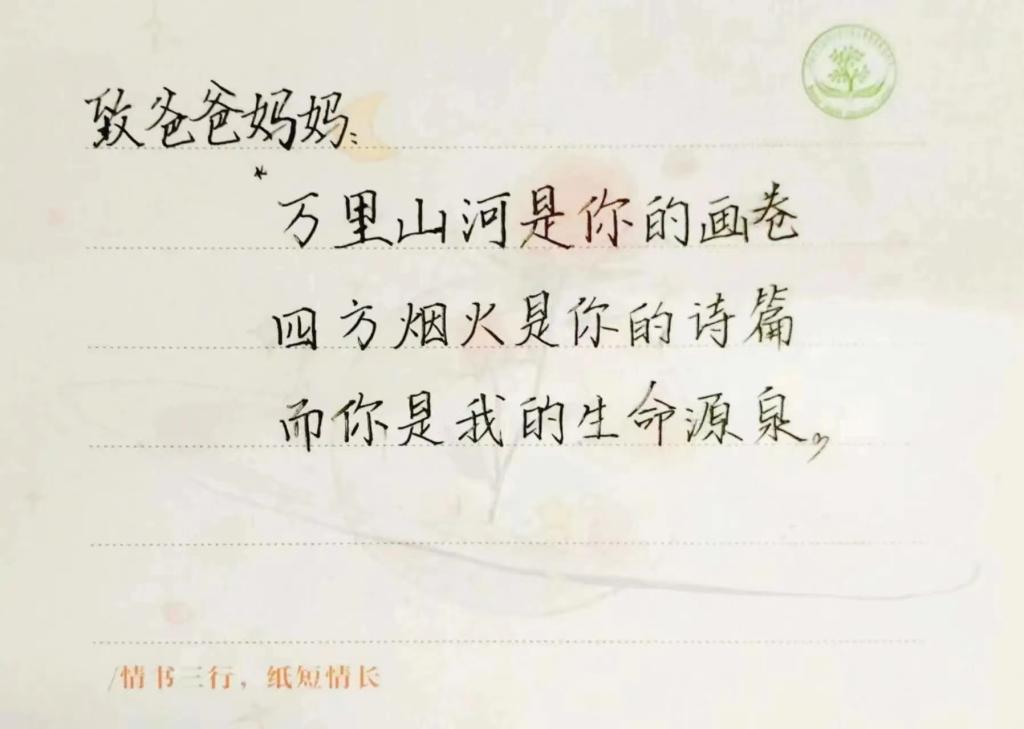 致爸爸妈妈：
万里山河是你的画卷
四方烟火是你的诗篇
而你是我的生命源泉。
/情书三行，纸短情长